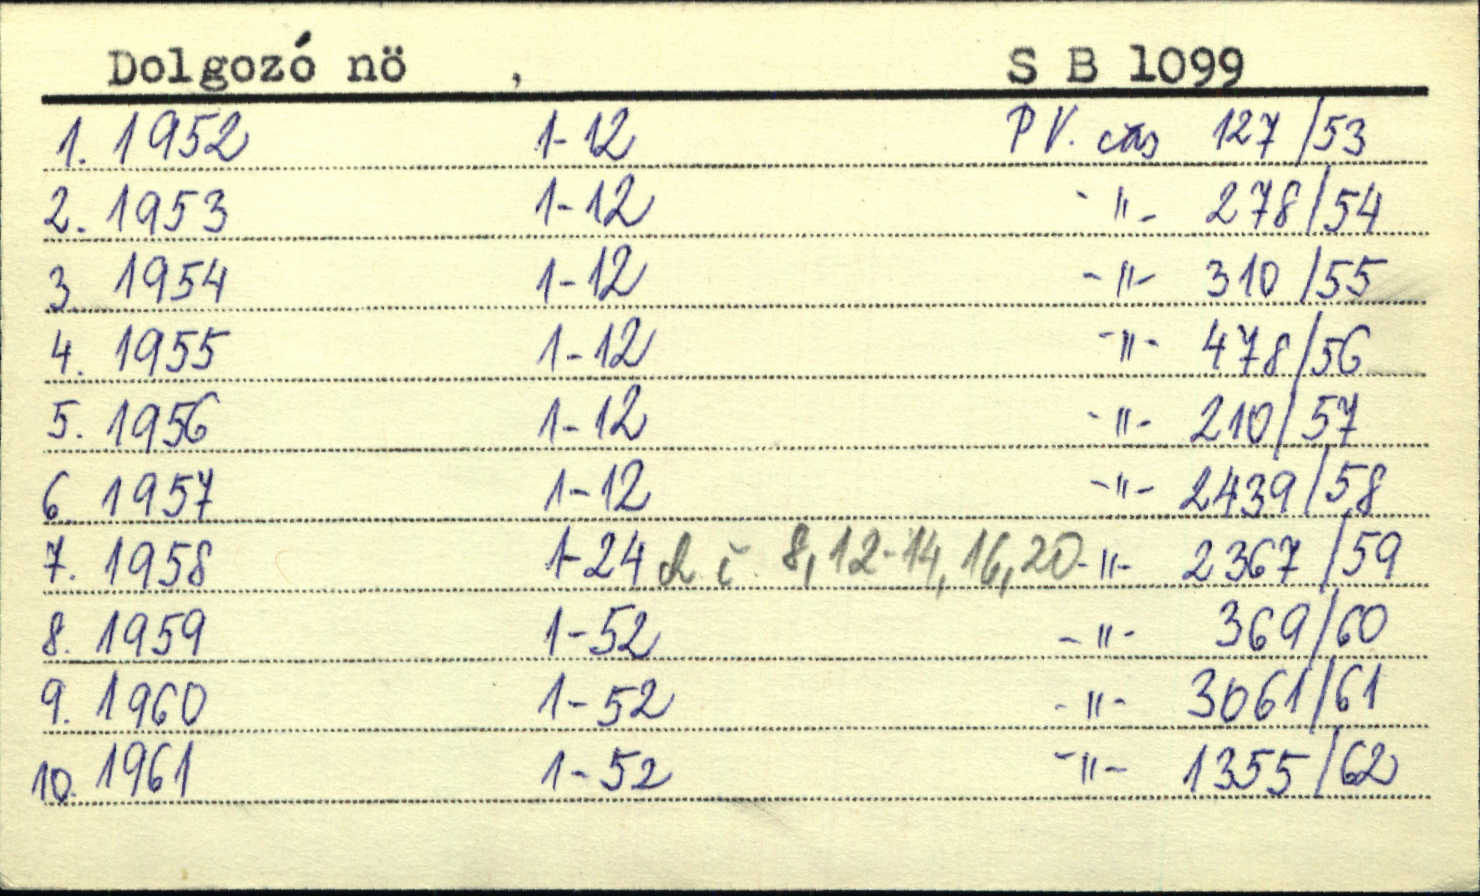 Dolgozó nö , S B 1099
1. 1952 1-12 PV. čas 127/53
2. 1953 1-12 -"- 278/54
3. 1954 1-12 -"- 310/55
4. 1955 1-12 -"- 478/56
5. 1956 1-12 -"- 210/57
6. 1957 1-12 -"- 2439/58
7. 1958 1-24 ch. č. 8, 12-14, 16, 20 -"- 2367/59
8. 1959 1-52 -"- 369/60
9. 1960 1-52 -"- 3061/61
10. 1961 1-52 -"- 1355/62